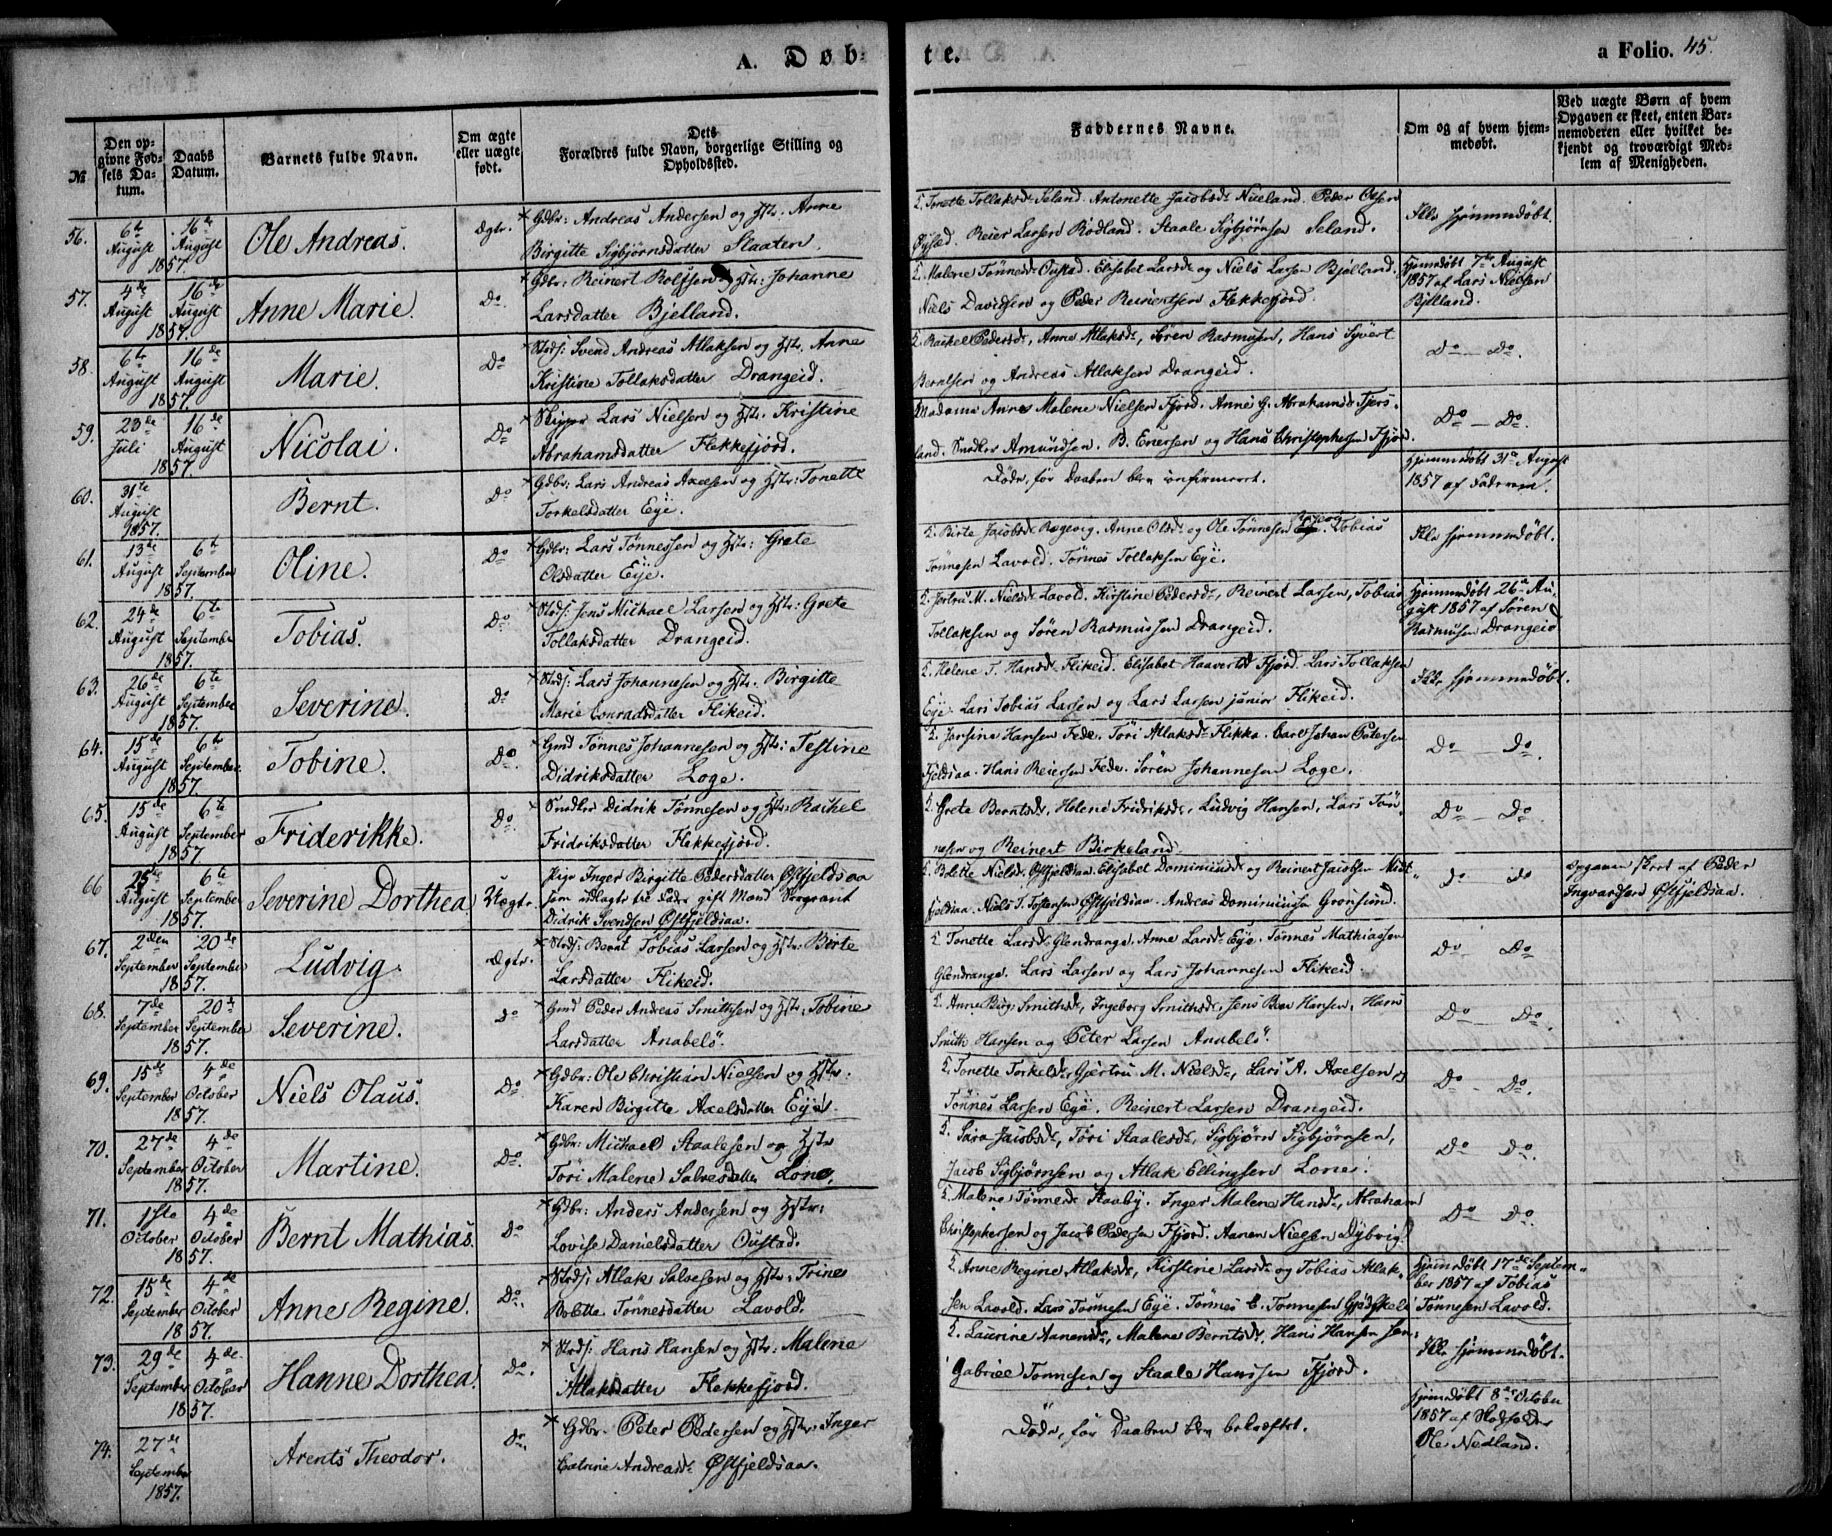 A. Døb-
te.
a Folio. 45.
№
Den opgivne Fødsels Datum.
Daabs Datum.
Barnets fulde Navn.
Om ægte eller uægte født.
Dets Forældres fulde Navn, borgerlige Stilling og Opholdssted.
Faddernes Navne.
Om og af hvem hjemmedøbt.
Ved uægte Børn af hvem Opgaven er skeet, enten Barnemoderen eller hvilket bekjendt og troværdigt Medlem af Menigheden.
56. 6te August 16de August 1857. Ole Andreas. Ægte. Gdbr: Andreas Andersen og Hstr: Anne
Birgitte Sigbjørnsdatter Slaaten.
Tonette Tollaksd. Seland. Antonette Jacobsd. Nueland. Peder Olsen
Øysæd. Reier Larsen Rødland. Staale Sigbjørnsen Seland.
Ikke hjemmedøbt.
57. 4de August 16de August 1857. Anne Marie. Do. Gdbr: Reinert Rolfsen og Hstr: Johanne
Larsdatter Bjelland.
Malene Tønnesd. Oustad. Elisabet Larsd. og Niels Larsen Bjelland.
Niels Davidsen og Peder Reinertsen Flekkefjord.
Hjemdøbt 7de August
1857 af Lars Nielsen
Bjelland.
58. 6te August 16de August 1857. Marie. Do Strds: Svend Andreas Atlaksen og Hstr. Anne
Kristine Tollaksdatter Drangeid.
Rachel Pedersd., Anne Atlaksd., Søren Rasmusen, Hans Syvert
Berntsen og Andreas Atlaksen Drangeid.
Do — Do.
59. 23de Juli 16de August 1857. Nicolai. Do Skipper Lars Nielsen og Hstr. Kristine
Abrahamsdatter Flekkefjord.
Madame Anne Malene Nielsen Fjord. Anne G. Abrahamsd. Tjers-
land. Snedker Amundsen. B. Enersen og Hans Christophersen Fjord.
Do — Do.
60. 31te August 1857. Bernt. Do Gdbr: Lars Andreas Axelsen og Hstr: Tonette
Torkelsdatter Eye.
Døde, før Daaben blev confirmeret.
Hjemmedøbt 31te August
1857 af Faderen.
61. 13de August 6te September 1857. Oline. Do Gdbr: Lars Tønnessen og Hstr: Grete
Olsdatter Eye.
Birte Jacobsd. Røgeorg. Anne Olsd. og Ole Tønnesen Tobias
Tønnesen Lavold. Tønnes Tollaksen Eye.
Ikke hjemmedøbt.
62. 24de August 6te September 1857. Tobias. Do. Strds: Jens Michael Larsen og Hstr: Grete
Tollaksdatter Drangeid.
Jertru M. Nielsd. Lavold. Kirstine Pedersd., Reinert Larsen, Tobias
Tollaksen og Søren Rasmussen Drangeid.
Hjemmedøbt 26de Au-
gust 1857 af Søren
Rasmusen Drangeid
63. 26de August 6te September 1857. Severine. Do. Strds: Lars Johannesen og Hstr. Birgitte
Marie Conradsdatter Flikeid.
Helene T. Hansd. Flikeid. Elisabet Haavortsd. Fjord. Lars Tollaksen
Eye. Lars Tobias Larsen og Lars Larsen junior Flikeid.
Ikke hjemmedøbt.
64. 15de August 6te September 1857. Tobine. Do. Gmd Tønnes Johannesen og Hstr: Testine
Didriksdatter Loge.
Jansine Hansen Fede. Tøri Atlaksd. Flikka. Carl Johan Petersen
Fjeldsaa. Hans Reiersen Fede. Søren Johannesen Loge.
Do — Do.
65. 15de August 6te September 1857 Friderikke. Do. Snedker Didrik Tønnesen og Hstr: Rachel
Fridriksdatter Flekkefjord.
Grete Berntsd., Helene Fridriksd., Ludvig Hansen, Lars Tøn-
nesen og Reinert Birkeland.
Do — Do.
66 25de August 6te September 1857. Severine Dorthea. Uægte. Pige Inger Birgitte Pedersdatter Østfjeldsaa
som udlagte til Fader gift Mand Sergeant
Didrik Svendsen Østfjeldsaa.
Bolette Nielsd. Østfjeldsaa. Elisabet Dominicusd. og Reinert Jacobsen Midt-
fjeldsaa. Niels T. Tostensen Østfjeldsaa. Andreas Dominicusen Grønsund.
Do Do
Opgaven skeet af Peder
Ingvardsen Østfjeldsaa.
67. 2den September 20de September 1857. Ludvig. Ægte. Strds: Bernt Tobias Larsen og Hstr: Birte
Larsdatter Flikeid.
Tonette Larsd. Glendrange. Anne Larsd. Eye. Tønnes Mathiassen
Glendrange. Lars Larsen og Lars Johannesen Flikeid.
Do — Do.
68. 7de September 20de September 1857. Severine. Do Gmd Peder Andreas Smithsen og Hstr: Tobine
Larsdatter Anabelø.
Anne Birg. Smithsd., Ingeborg Smithsd., Jens Bær Hansen, Hans
Smith Hansen og Peter Larsen Anabelø.
Do — Do.
69. 15de September 4de October 1857. Niels Olaus. Do. Gdbr: Ole Christian Nielsen og Hstr:
Karen Birgitte Axelsdatter Eye.
Tonette Torkelsd., Gjertru M. Nielsd., Lars A. Axelsen,
Tønnes Larsen Eye. Reinert Larsen Drangeid.
Do — Do.
70. 27de September 4de October 1857. Martine. Do. Gdbr: Michael Staalesen og Hstr
Tori Malene Salvesdatter Lone.
Sara Jacobsd., Tøri Staalesd., Sigbjørn Sigbjørnsen,
Jacob Sigbjørnsen og Atlak Ellingssen Lone.
Do Do.
71. 1ste October 4de October 1857. Bernt Mathias. Do Gdbr: Anders Andersen og Hstr:
Lovise Danielsdatter Oustad.
Malene Tønnesd. Staaby. Inger Malene Hansd., Abraham
Christophersen og Jacob Pedersen Fjord. Aanen Nielsen Dybvig.
Do Do.
72. 15de September 4de October 1857. Anne Regine. Do. Strds: Atlak Salvesen og Hstr: Trine
Bolette Tønnesdatter Lavold.
Anne Regine Atlaksd., Kirstine Larsd. og Tobias Atlak-
sen Lavold. Lars Tønnesen Eye. Tønnes C. Tønnesen
Hjemdøbt 17de Septem-
ber 1857 af Tobias
Tønnesen Lavold.
73. 29de September 4de October 1857. Hanne Dorthea. Do. Strds: Hans Hansen og Hstr: Malene
Atlaksdatter Flekkefjord.
Laurine Aanensd., Malene Berntsd. Hans Hansen sen:
Gabriel Tønnesen og Staale Hanssen Fjord.
Ikke hjemmedøbt.
74. 27de September 1857. Arents Theodor. Do. Gdbr. Peter Pedersen og Hstr: Inger
Catrine Andreasd. Østfjeldsaa.
Døde, før Daaben blev bekræftet.
Hjemdøbt 8de October
1857 af Skoleholder
Ole Nedland.